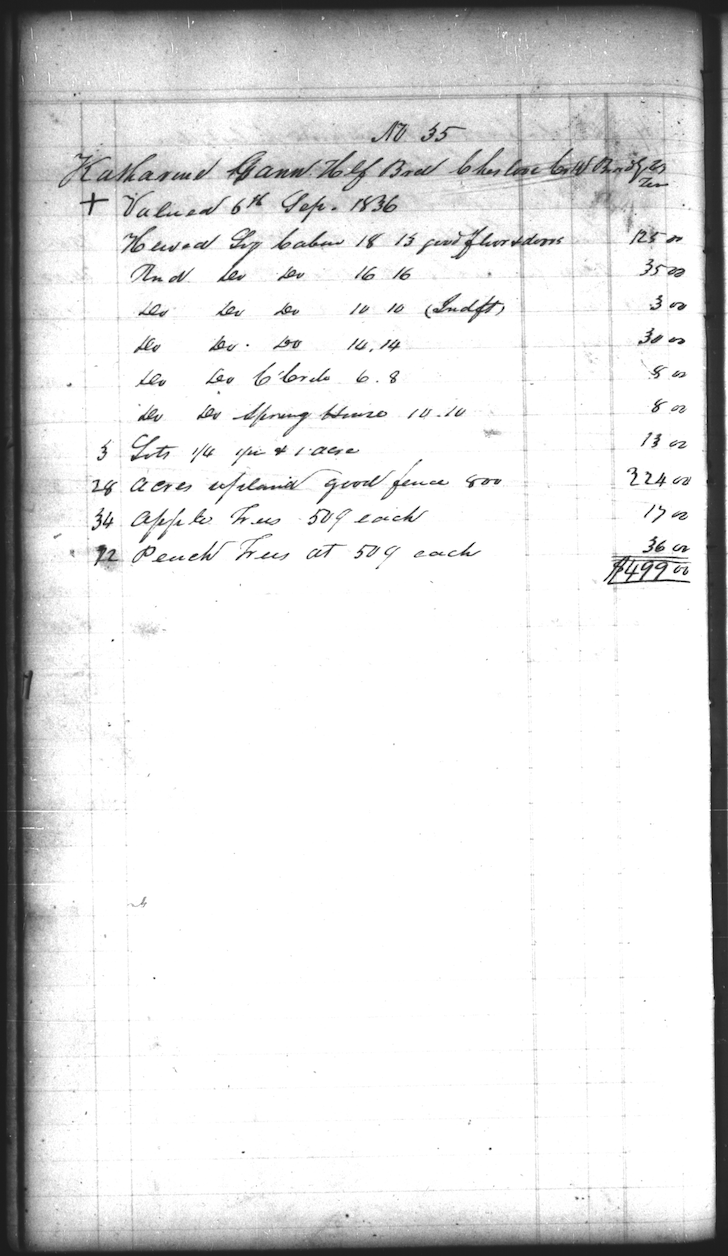 No 35
Katharine Gann Half Bred Chestoee Creek
Ten
+ Valued 6th Sep. 1836
Hewed Log Cabin 18 15 good floor & doors 125 00
Rnd Do Do 16 16 35 00
Do Do Do 10 10 (Indft) 3 00
Do Do. Do 14.14 30 00
Do Do C Crib 6.8 8 00
Do Do Spring House 10.10 8 00
3 Lots 1/4 & 1 acre 13 00
28 acres upland good fence 800 224 00
34 Apple Trees 50¢ each 17 00
72 Peach Trees at 50¢ each 36 00
$499 00